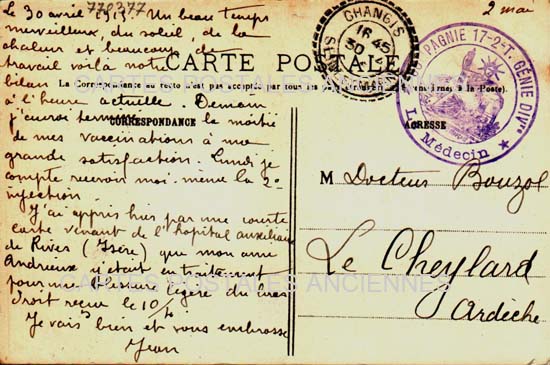 Le 30 avril 1915. Un beau temps
merveilleux, du soleil, de la
chaleur et beaucoup de
travail voilà notre
bilan
à l'heure actuelle. Demain
j'aurai terminé la moitié
de mes vaccinations à ma
grande satisfaction. Lundi je
compte recevoir moi-même la 2e
injection.
J'ai appris hier par une courte
carte venant de l'hopital auxiliaire
de Rives (Isère) que mon ami
Andrieux y était en traitement
pour une blessure légère du bras
droit reçue le 10/4
Je vais bien et vous embrasse
Jean
770377
2 mai
CARTE POSTALE
La Correspondance au recto n'est pas acceptée par tous les pays
(à la Poste).
CORRESPONDANCE
ADRESSE
CHANGIS
16 45
30
PAGNIE 17-2-T. GÉNIE DIVre
Le Médecin
M Docteur Bouzol
Le Cheylard
Ardèche
CARTES POSTALES ANCIENNES
CARTES POSTALES ANCIENNES